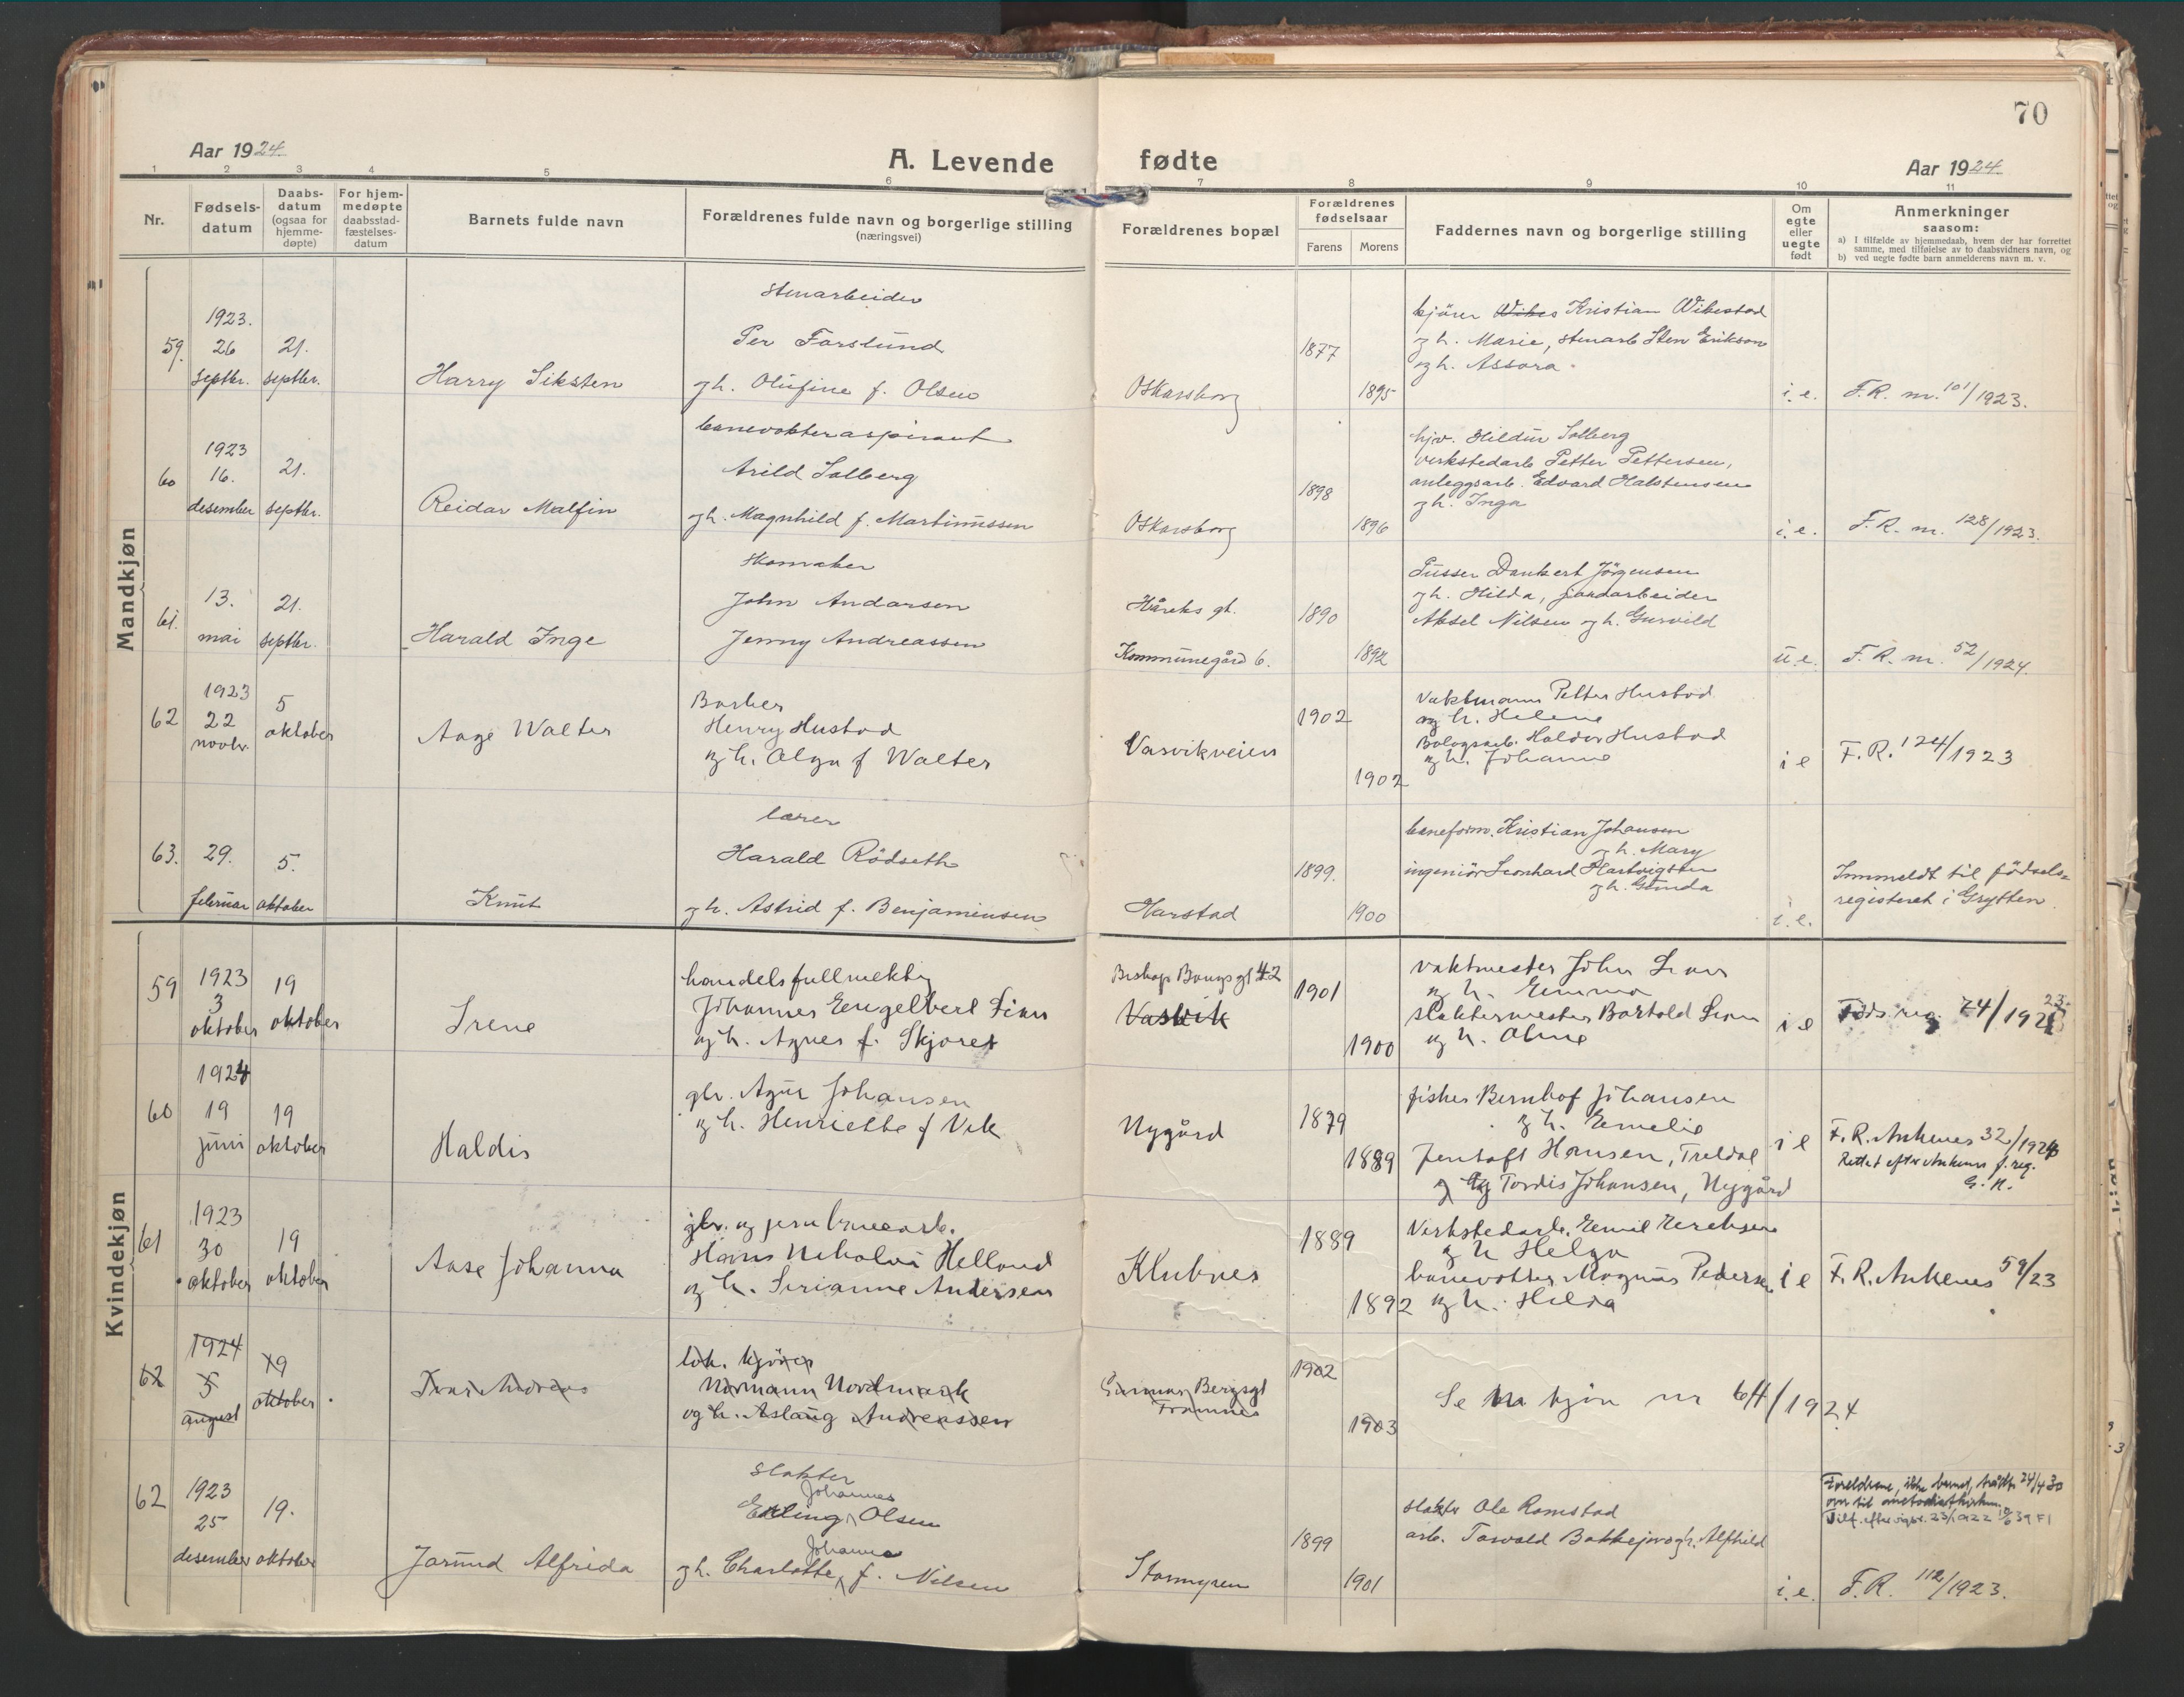 70
Aar 1924.
A. Levende
fødte
Aar 1924.
1 2 3 4 5 6 7 8 9 10 11
Nr.
Fødsels-
datum
Daabs-
datum
(ogsaa for
hjemme-
døpte)
For hjem-
medøpte
daabsstad-
fæstelses-
datum
Barnets fulde navn
Forældrenes fulde navn og borgerlige stilling
(næringsvei)
Forældrenes bopæl
Forældrenes
fødselsaar
Farens Morens
Faddernes navn og borgerlige stilling
Om
egte
eller
uegte
født
Anmerkninger
saasom:
a) I tilfælde av hjemmedaab, hvem der har forrettet
samme, med tilføielse av to daabsvidners navn, og
b) ved uegte fødte barn anmelderens navn m. v.
Mandkjøn
59.
1923.
26
septbr.
21.
septbr.
Harry Siksten
stenarbeider
Per Forslund
og h. Olufine f. Olsen
Oskarsborg
1877
1895
kjører Kristian Wibestad
og h. Marie, stenarb Sten Erikson
og h. Assora.
i.e.
F.R. m. 101/1923.
60
1923
16.
desember
21.
septbr.
Reidar Malfin
banevokteraspirant
Arild Solberg
og h. Magnhild f. Martinussen
Oskarsborg
1898
1896
hjv. Hildur Solberg
verkstedarb Petter Pettersen,
anleggsarb. Edvard Halstensen
og h. Inga
i.e.
F.R. m. 128/1923.
61.
13.
mai
21.
septbr.
Harald Inge
skomaker
John Andersen
Jenny Andreassen
Håreks gt.
Kommunegård 6.
1890
1892
Pusser Dankert Jörgensen
og h. Hilda, jordarbeider
Aksel Nilsen og h. Gurvild
u.e.
F.R. m. 52/1924.
62
1923
22
novbr.
5
oktober
Aage Walter
Barber
Henry Hustad
og h. Olga f Walter
Vasvikveien
1902
1902
Vaktmann Petter Hustad
og h. Helene
Bologsarb. Haldor Hustad
og h. Johanne
i e
F.R. 124/1923
63.
29.
februar
5.
oktober
Knut
lærer
Harald Rödseth
og h. Astrid f. Benjaminsen
Harstad
1899.
1900
baneform. Kristian Johansen
og h. Mary
ingeniör Leonhard Hartvigsten
og h. Gunda
i.e.
Innmeldt til födsels-
registeret i Grytten
Kvindekjøn
59
1923
3
oktober
19
oktober
Irene
handelsfullmektig
Johannes Engelbert Lian
og h. Agnes f. Skjoret
Biskop Bangs gt 42
Vasvik
1901
1900
vaktmester John Lian
og h. Emma
slaktermester Bartold Lian
og h. Oline
i e
Föds. reg. 74/1923
60
1924
19
juni
19
oktober
Haldis
gbr. Agur Johansen
og h. Henriette f Vik
Nygård
1879
1889
fisker Bernhof Johansen
og h. Emelie
Jentoft Hansen, Treldal
og Tordis Johansen, Nygård
i e
F.R. Ankenes 32/1924
Rettet efter Ankenes f.reg.
G.N.
61
1923
30
oktober
19
oktober
Aase Johanna
gbr. og jernbanearb.
Hans Nikolai Helland
og h. Sirianne Andersen
Klubnes
1889
1892
Verkstedarb. Emil Eerichsen
og h Helga
banevokter Magnus Pedersen
og h. Hilda
i e
F.R. Ankenes 59/23
62
1924
5
august
19
oktober
Ivar Andreas
lok. kjörer
Normann Nordmark
og h. Aslaug Andreassen
Gunnar Bergsgt
Framnes
1902
1903
Se kjön nr 64/1924
62
1923
25
desember
19.
oktober
Jorund Alfrida
slakter
Johannes
Erling Olsen
Johanne
og h. Charlotte f. Nilsen
Stormyren
1899
1901
slakter Ole Romstad
arb. Torvald Bakkejord og h. Alfhild
i.e.
Foreldrene, ikke barnet, trådte 24/4 30
over til metodistkirken.
F.R. 112/1923.